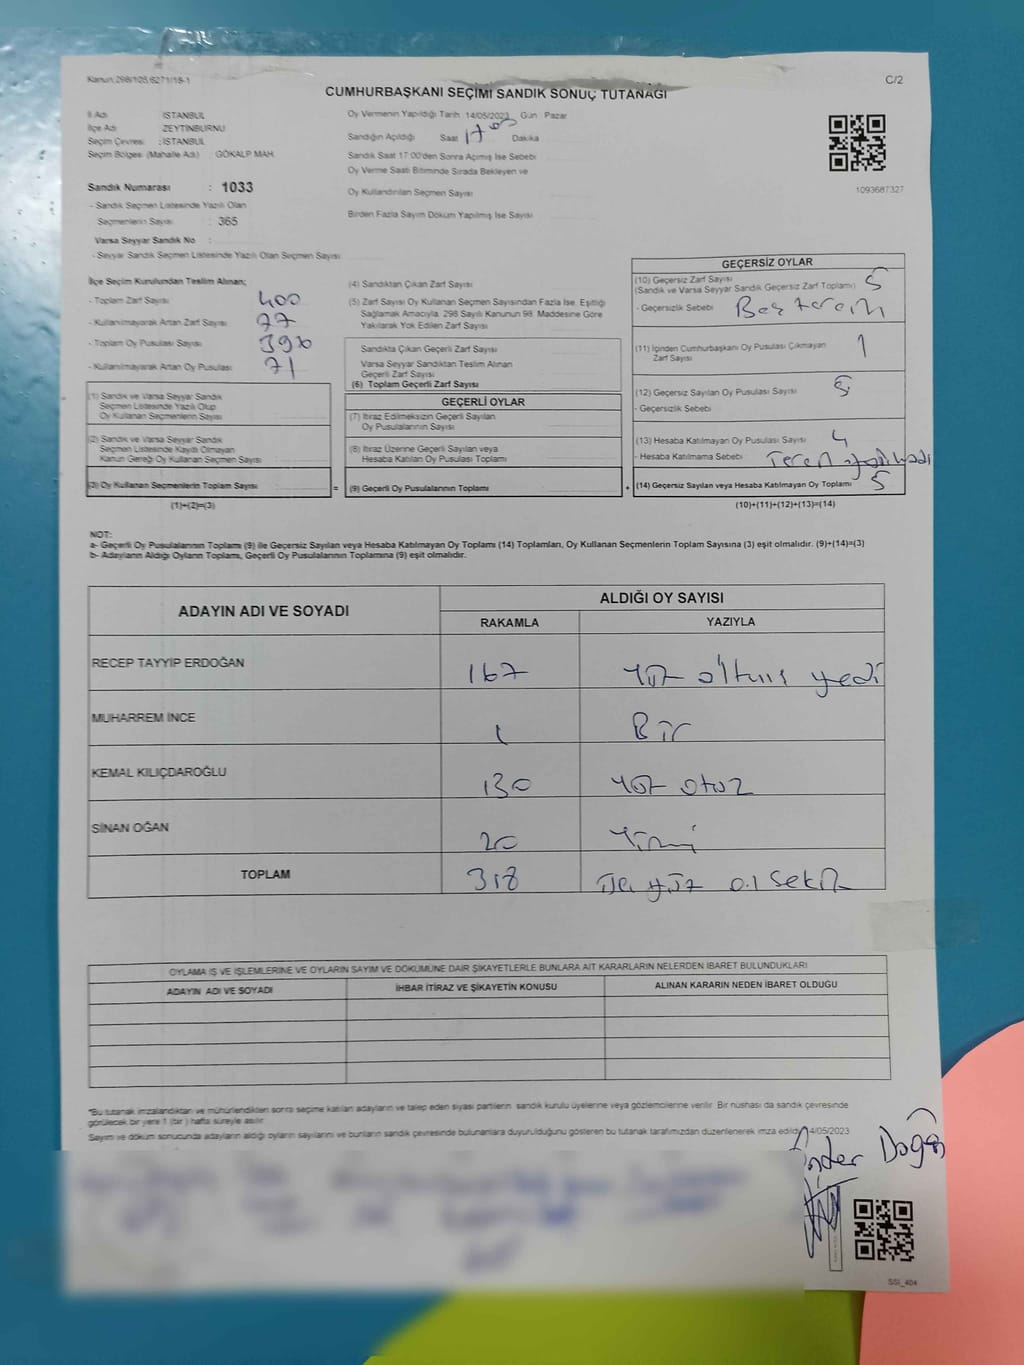 Kanun 298/105,6271/18-1
C/2
CUMHURBAŞKANI SEÇİMİ SANDIK SONUÇ TUTANAĞI
İl Adı : İSTANBUL
İlçe Adı : ZEYTİNBURNU
Seçim Çevresi : İSTANBUL
Seçim Bölgesi (Mahalle Adı) : GÖKALP MAH.
Sandık Numarası : 1033
- Sandık Seçmen Listesinde Yazılı Olan
Seçmenlerin Sayısı : 365
Varsa Seyyar Sandık No :
- Seyyar Sandık Seçmen Listesinde Yazılı Olan Seçmen Sayısı
Oy Vermenin Yapıldığı Tarih 14/05/2023 Gün : Pazar
Sandığın Açıldığı Saat 17 Dakika
Sandık Saat 17:00'den Sonra Açımış İse Sebebi
Oy Verme Saati Bitiminde Sırada Bekleyen ve
Oy Kullandırılan Seçmen Sayısı
Birden Fazla Sayım Döküm Yapılmış İse Sayısı
1093687327
İlçe Seçim Kurulundan Teslim Alınan;
- Toplam Zarf Sayısı 400
- Kullanılmayarak Artan Zarf Sayısı 77
- Toplam Oy Pusulası Sayısı 390
- Kullanılmayarak Artan Oy Pusulası 71
(1) Sandık ve Varsa Seyyar Sandık
Seçmen Listesinde Yazılı Olup
Oy Kullanan Seçmenlerin Sayısı
(2) Sandık ve Varsa Seyyar Sandık
Seçmen Listesinde Kaydı Olmayan
Kanun Gereği Oy Kullanan Seçmen Sayısı :
(3) Oy Kullanan Seçmenlerin Toplam Sayısı =
(1)+(2)=(3)
(4) Sandıktan Çıkan Zarf Sayısı
(5) Zarf Sayısı Oy Kullanan Seçmen Sayısından Fazla İse, Eşitliği
Sağlamak Amacıyla, 298 Sayılı Kanunun 98. Maddesine Göre
Yakılarak Yok Edilen Zarf Sayısı
Sandıkta Çıkan Geçerli Zarf Sayısı
Varsa Seyyar Sandıktan Teslim Alınan
Geçerli Zarf Sayısı
(6) Toplam Geçerli Zarf Sayısı
GEÇERLİ OYLAR
(7) İtiraz Edilmeksizin Geçerli Sayılan
Oy Pusulalarının Sayısı
(8) İtiraz Üzerine Geçerli Sayılan veya
Hesaba Katılan Oy Pusulası Toplamı
(9) Geçerli Oy Pusulalarının Toplamı +
GEÇERSİZ OYLAR
(10) Geçersiz Zarf Sayısı
(Sandık ve Varsa Seyyar Sandık Geçersiz Zarf Toplamı) 5
- Geçersizlik Sebebi
(11) İçinden Cumhurbaşkanı Oy Pusulası Çıkmayan 1
Zarf Sayısı
(12) Geçersiz Sayılan Oy Pusulası Sayısı 5
- Geçersizlik Sebebi
(13) Hesaba Katılmayan Oy Pusulası Sayısı 4
- Hesaba Katılmama Sebebi
(14) Geçersiz Sayılan veya Hesaba Katılmayan Oy Toplamı 5
(10)+(11)+(12)+(13)=(14)
NOT:
a- Geçerli Oy Pusulalarının Toplamı (9) ile Geçersiz Sayılan veya Hesaba Katılmayan Oy Toplamı (14) Toplamları, Oy Kullanan Seçmenlerin Toplam Sayısına (3) eşit olmalıdır. (9)+(14)=(3)
b- Adayların Aldığı Oyların Toplamı, Geçerli Oy Pusulalarının Toplamına (9) eşit olmalıdır.
ADAYIN ADI VE SOYADI
ALDIĞI OY SAYISI
RAKAMLA YAZIYLA
RECEP TAYYİP ERDOĞAN 167 Yüz altmış yedi
MUHARREM İNCE 1 Bir
KEMAL KILIÇDAROĞLU 130 Yüz otuz
SİNAN OĞAN 20 Yirmi
TOPLAM 318 Üç yüz on sekiz
OYLAMA İŞ VE İŞLEMLERİNE VE OYLARIN SAYIM VE DÖKÜMÜNE DAİR ŞİKAYETLERLE BUNLARA AİT KARARLARIN NELERDEN İBARET BULUNDUKLARI
ADAYIN ADI VE SOYADI İHBAR İTİRAZ VE ŞİKAYETİN KONUSU ALINAN KARARIN NEDEN İBARET OLDUĞU
*Bu tutanak imzalandıktan ve mühürlendikten sonra seçime katılan adayların ve talep eden siyasi partilerin sandık kurulu üyelerine veya gözlemcilerine verilir. Bir nüshası da sandık çevresinde
görülecek bir yere 1 (bir) hafta süreyle asılır.
Sayım ve döküm sonucunda adayların aldığı oyların sayılarını ve bunların sandık çevresinde bulunanlara duyurulduğunu gösteren bu tutanak tarafımızdan düzenlenerek imza edildi. 14/05/2023
Önder Doğan
SSİ_404